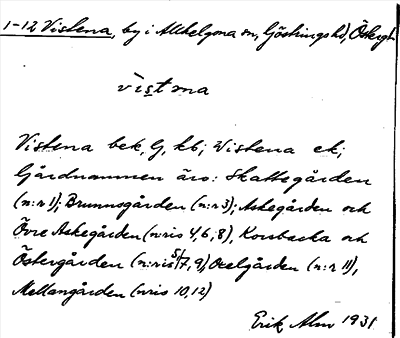 1-12 Vistena, by i Allhelgona sn, Göstrings hd, Östergl.
vistna
Vistena bek, G, kb; Wistena ek;
Gårdnamnen äro: Skattegården
(n:r 1); Brunnsgården (n:r 3); Askegården och
Övre Askegården (n:ris 4, 6, 8), Korsbacka och
Östergården (n:ris 5/7, 9), Oxelgården (n:r 11),
Mellangården (n:ris 10, 12)
Erik Alm 1931